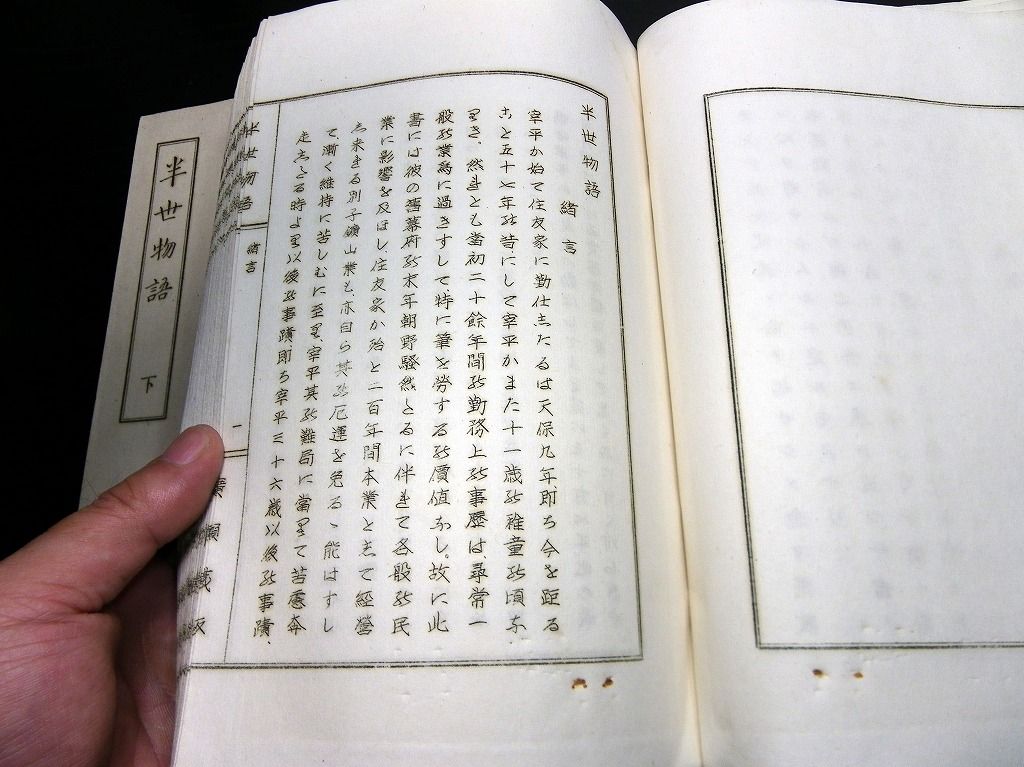 半世物語
緒言
宰平か始て住友家に勤仕したるは天保九年、即ち今を距る
こと五十七年の昔にして宰平かまた十一歳の稚童の頃な
りき、然れとも當初二十餘年間の勤務上の事歴は、尋常一
般の業爲に過きすして、特に筆を勞するの價値なし。故に此
書には彼の舊幕府の末年朝野騒然たるに伴れて各般の民
業に影響を及ほし、住友家か殆と二百年間本業として經營
し来れる別子鑛山業も、亦自ら其の厄運を免るゝ能はすし
て漸く維持に苦しむに至り、宰平其の難局に當りて苦慮奔
走したる時より以後の事蹟、即ち宰平三十六歳以後の事蹟、
半世物語
緒言
一
半世物語
下